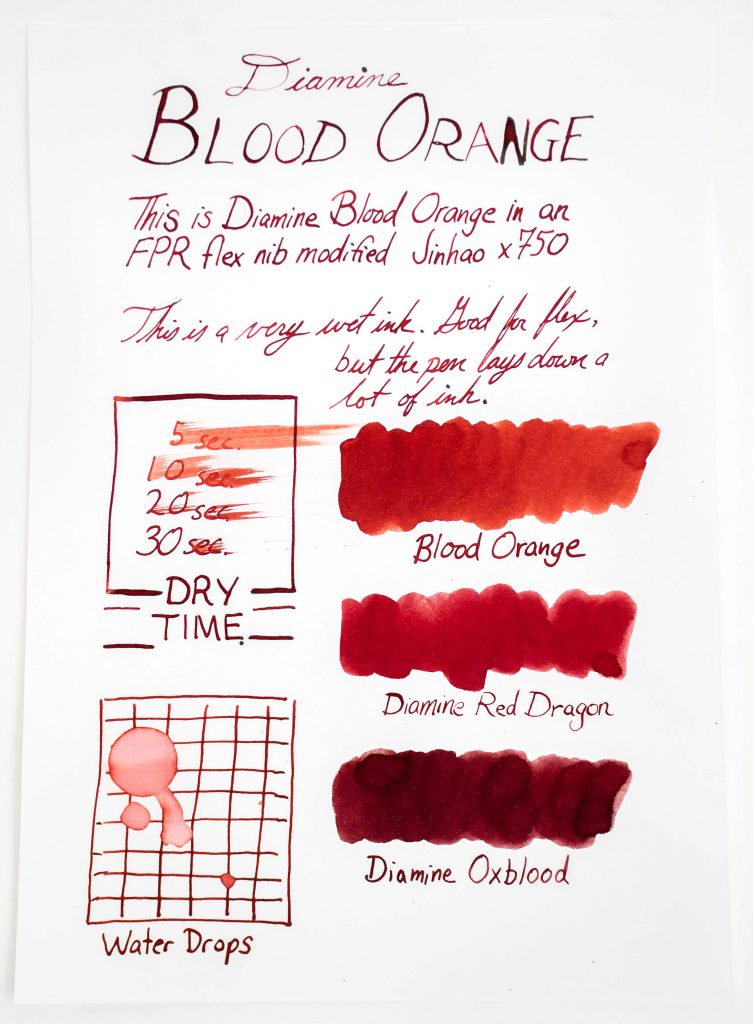 Diamine
BLOOD ORANGE
This is Diamine Blood Orange in an
FPR flex nib modified Jinhao x750
This is a very wet ink. Good for flex,
but the pen lays down a
lot of ink.
5 sec.
10 sec.
20 sec.
30 sec.
DRY
TIME
Blood Orange
Diamine Red Dragon
Diamine Oxblood
Water Drops